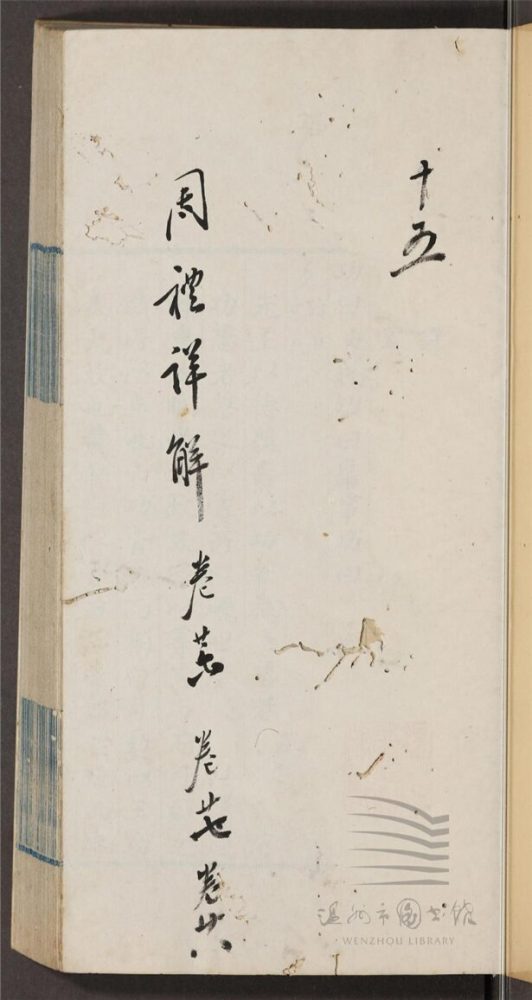 十五
周禮詳解 卷廿六 卷廿七 卷廿八
温州市图书馆
WENZHOU LIBRARY